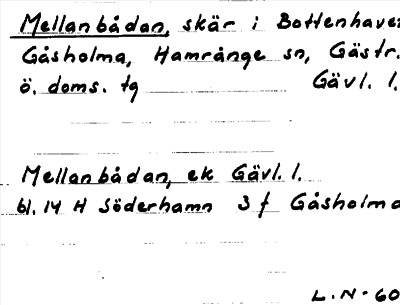 Mellanbådan, skär i Bottenhavet
Gåsholma, Hamrånge sn, Gästr.
ö. doms. tg Gävl. l.
Mellanbådan, ek Gävl. l.
bl. 14 H Söderhamn 3 f Gåsholma
L.N-60